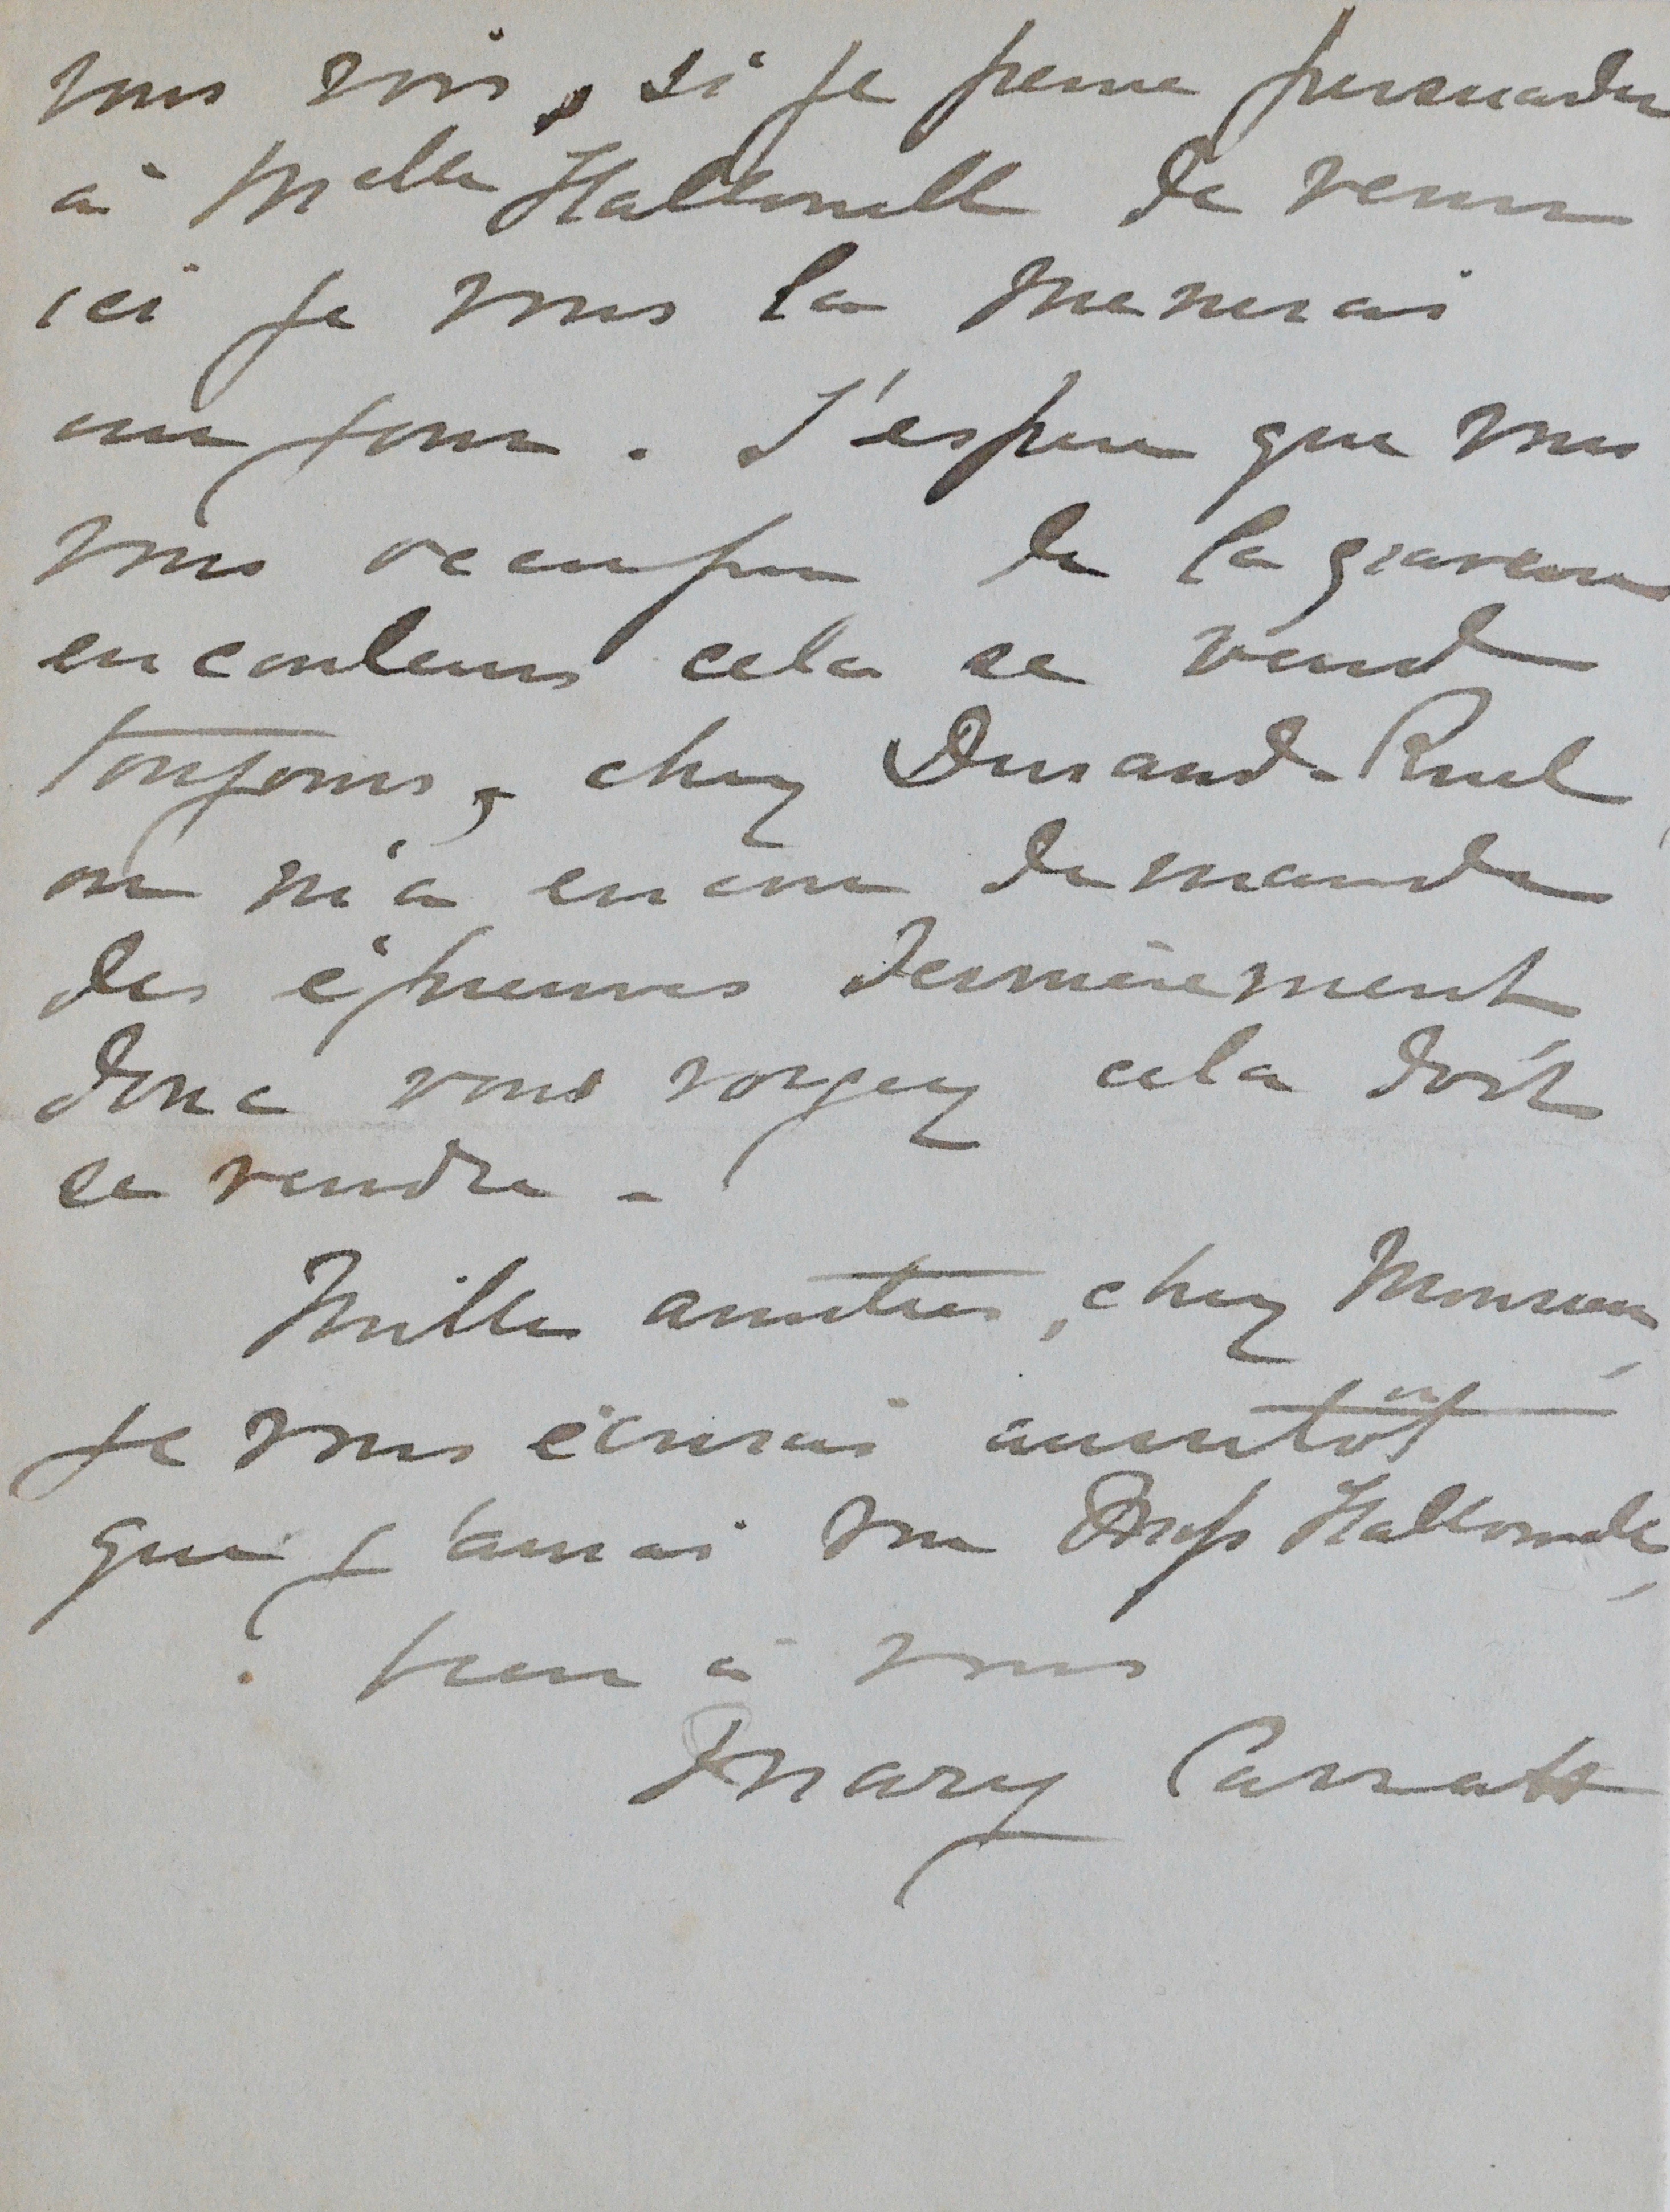 vous voir, si je peux persuader
à Melle Hallowell de venir
ici je vous la menerai
un jour. J'espere que vous
vous occupez de la gravure
en couleurs cela se vend
toujours, chez Durand-Ruel
on m'a encore demandé
des épreuves dernièrement
donc vous voyez cela doit
se vendre -
Mille amitiés, cher Monsieur,
je vous écrirai aussitôt
que j'aurai vu Miss Hallowell,
bien à vous
Mary Cassatt